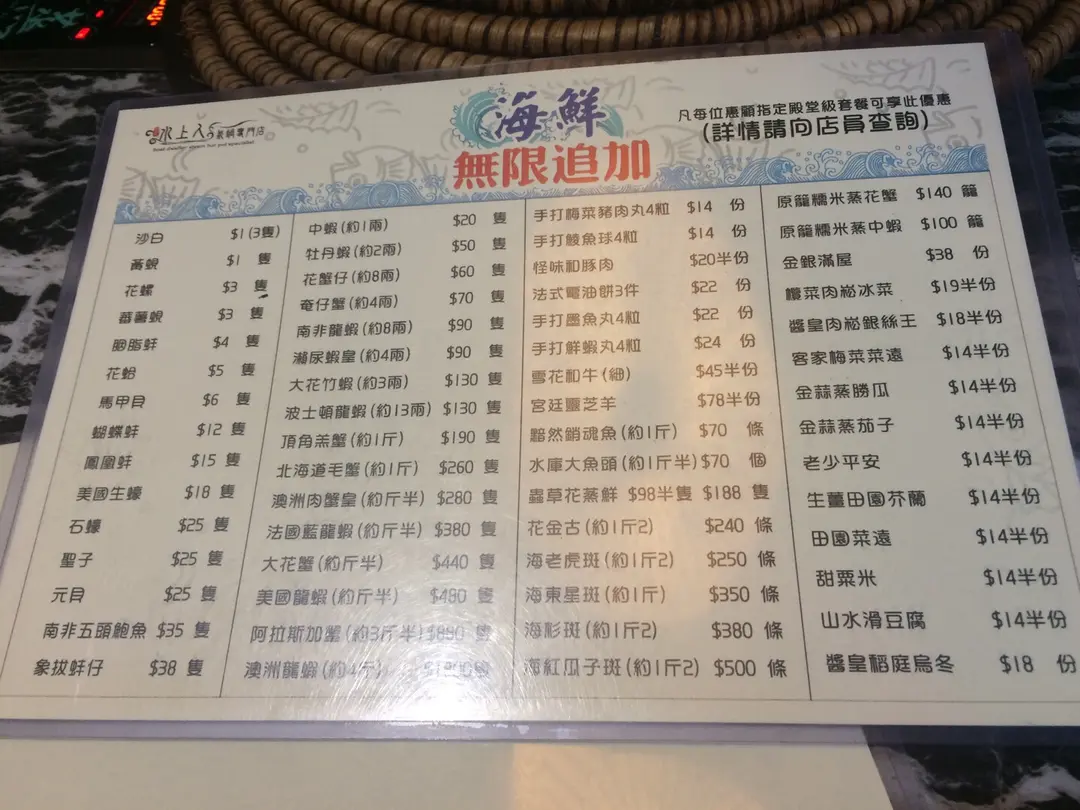 水上人蒸氣專門店
海鮮
無限追加
凡每位惠顧指定殿堂級套餐可享此優惠
(詳情請向店員查詢)
沙白 $1(3隻)
黃蜆 $1 隻
花螺 $3 隻
蕃薯蜆 $3 隻
胭脂蚌 $4 隻
花蛤 $5 隻
馬甲貝 $6 隻
蝴蝶蚌 $12 隻
鳳凰蚌 $15 隻
美國生蠔 $18 隻
石蠔 $25 隻
聖子 $25 隻
元貝 $25 隻
南非五頭鮑魚 $35 隻
象拔蚌仔 $38 隻
中蝦(約1兩) $20 隻
牡丹蝦(約2兩) $50 隻
花蟹仔(約8兩) $60 隻
奄仔蟹(約4兩) $70 隻
南非龍蝦(約8兩) $90 隻
瀨尿蝦皇(約4兩) $90 隻
大花竹蝦(約3兩) $130 隻
波士頓龍蝦(約13兩) $130 隻
頂角羔蟹(約1斤) $190 隻
北海道毛蟹(約1斤) $260 隻
澳洲肉蟹皇(約斤半) $280 隻
法國藍龍蝦(約斤半) $380 隻
大花蟹(約斤半) $440 隻
美國龍蝦(約斤半) $480 隻
阿拉斯加蟹(約3斤半) $890 隻
澳洲龍蝦(約4斤) 隻
手打梅菜豬肉丸4粒 $14 份
手打鯪魚球4粒 $14 份
怪味和豚肉 $20半份
法式電油餅3件 $22 份
手打墨魚丸4粒 $22 份
手打鮮蝦丸4粒 $24 份
雪花和牛(細) $45半份
宮廷靈芝羊 $78半份
黯然銷魂魚(約1斤) $70 條
水庫大魚頭(約1斤半) $70 個
蟲草花蒸鮮 $98半隻 $188 隻
花金古(約1斤2) $240 條
海老虎斑(約1斤2) $250 條
海東星斑(約1斤) $350 條
海杉斑(約1斤2) $380 條
海紅瓜子斑(約1斤2) $500 條
原籠糯米蒸花蟹 $140 籠
原籠糯米蒸中蝦 $100 籠
金銀滿屋 $38 份
欖菜肉崧冰菜 $19半份
醬皇肉崧銀絲王 $18半份
客家梅菜菜遠 $14半份
金蒜蒸勝瓜 $14半份
金蒜蒸茄子 $14半份
老少平安 $14半份
生薑田園芥蘭 $14半份
田園菜遠 $14半份
甜粟米 $14半份
山水滑豆腐 $14半份
醬皇稻庭烏冬 $18 份